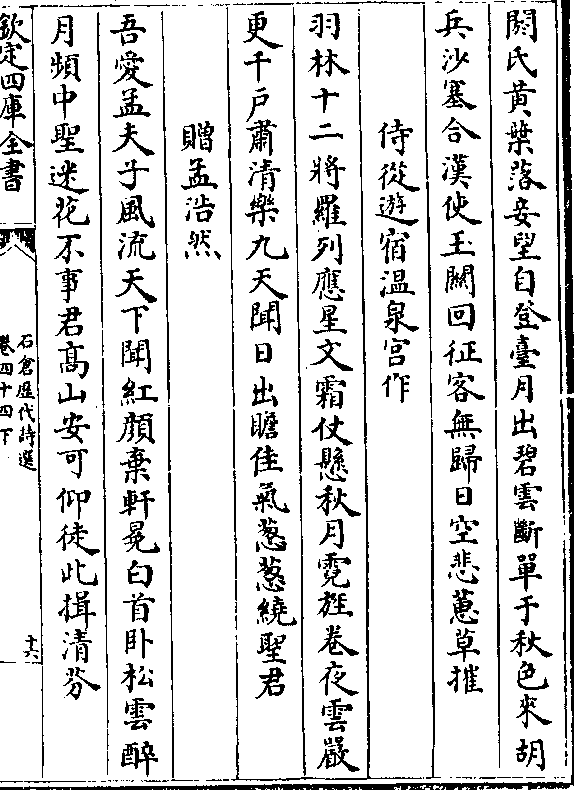 閼氏黄葉落妾望自登臺月出碧雲斷單于秋色來胡
兵沙塞合漢使玉關回征客無歸日空悲蕙草摧
侍從遊宿温泉宫作
羽林十二將羅列應星文霜仗懸秋月霓旌卷夜雲嚴
更千戸肅清樂九天聞日出瞻佳氣葱葱繞聖君
贈孟浩然
吾愛孟夫子風流天下聞紅顔棄軒冕白首卧松雲醉
月頻中聖迷花不事君高山安可仰徒此揖清芬
欽定四庫全書
石倉歴代詩選
卷四十四下
十六